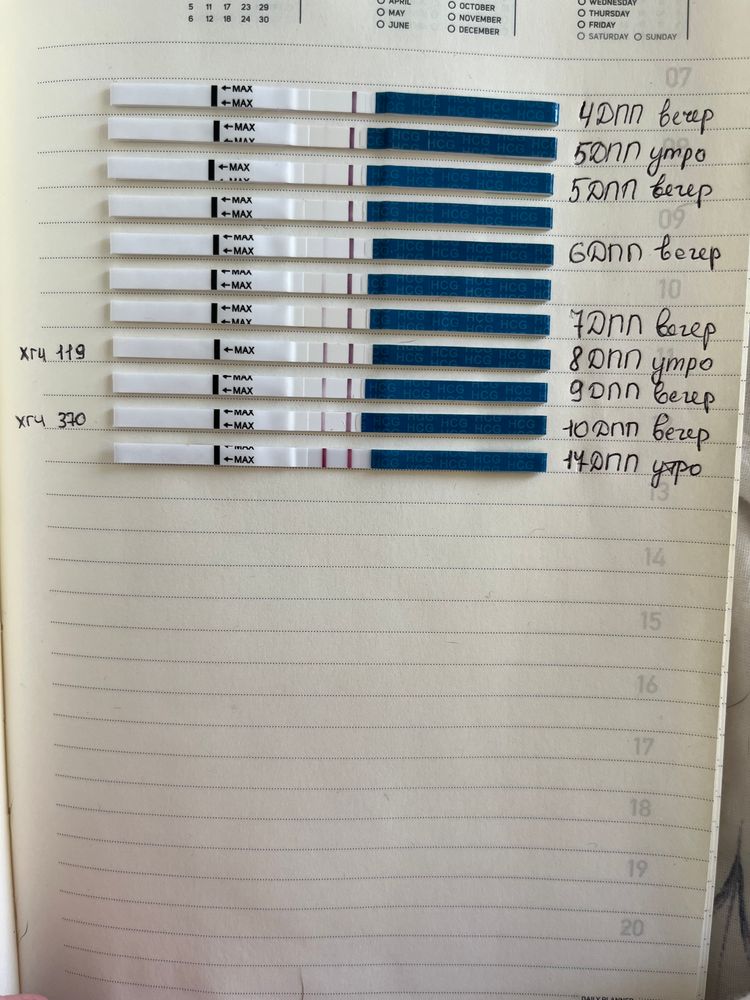 5 11 17 23 29
6 12 18 24 30
APRIL
MAY
JUNE
OCTOBER
NOVEMBER
DECEMBER
WEDNESDAY
THURSDAY
FRIDAY
SATURDAY SUNDAY
07
←MAX
←MAX
HCG HCG HCG HCG
4ДПП вечер
←MAX
HCG HCG HCG HCG
5ДПП утро
←MAX
HCG HCG HCG HCG
5ДПП вечер
←MAX
←MAX
HCG HCG HCG HCG
09
←MAX
←MAX
HCG HCG HCG HCG
6ДПП вечер
←MAX
←MAX
HCG HCG HCG HCG
10
←MAX
←MAX
HCG HCG HCG HCG
7ДПП вечер
хгч 119
←MAX
HCG HCG HCG HCG
8ДПП утро
←MAX
←MAX
HCG HCG HCG HCG
9ДПП вечер
хгч 370
←MAX
←MAX
HCG HCG HCG HCG
10ДПП вечер
←MAX
←MAX
HCG HCG HCG HCG
17ДПП утро
13
14
15
16
17
18
19
20
DAILY PLANNER